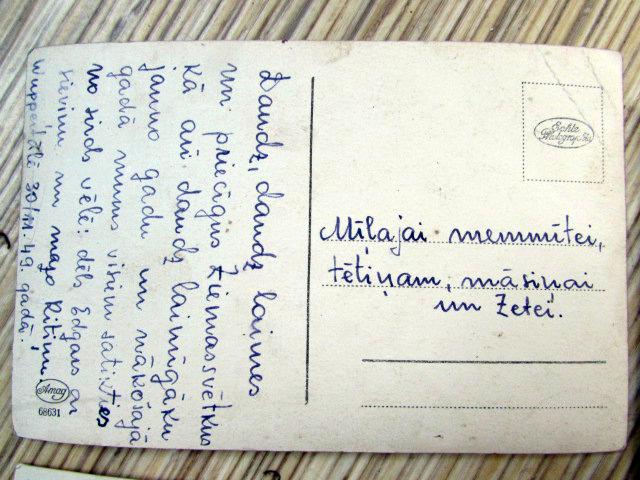 Daudz, daudz laimes
un priecīgus Ziemassvētkus
kā arī daudz laimīgāku
jauno gadu un nākošajā
gadā mums visiem satikties
no sirds vēlē: dēls Edgars ar
sieviņu un mazo Ritiņu
Wuppertālē 30/11.49. gadā.
Mīļajai memmītei,
tētiņam, māsiņai
un Zetei.
Echte
Photographie
Amag
68631